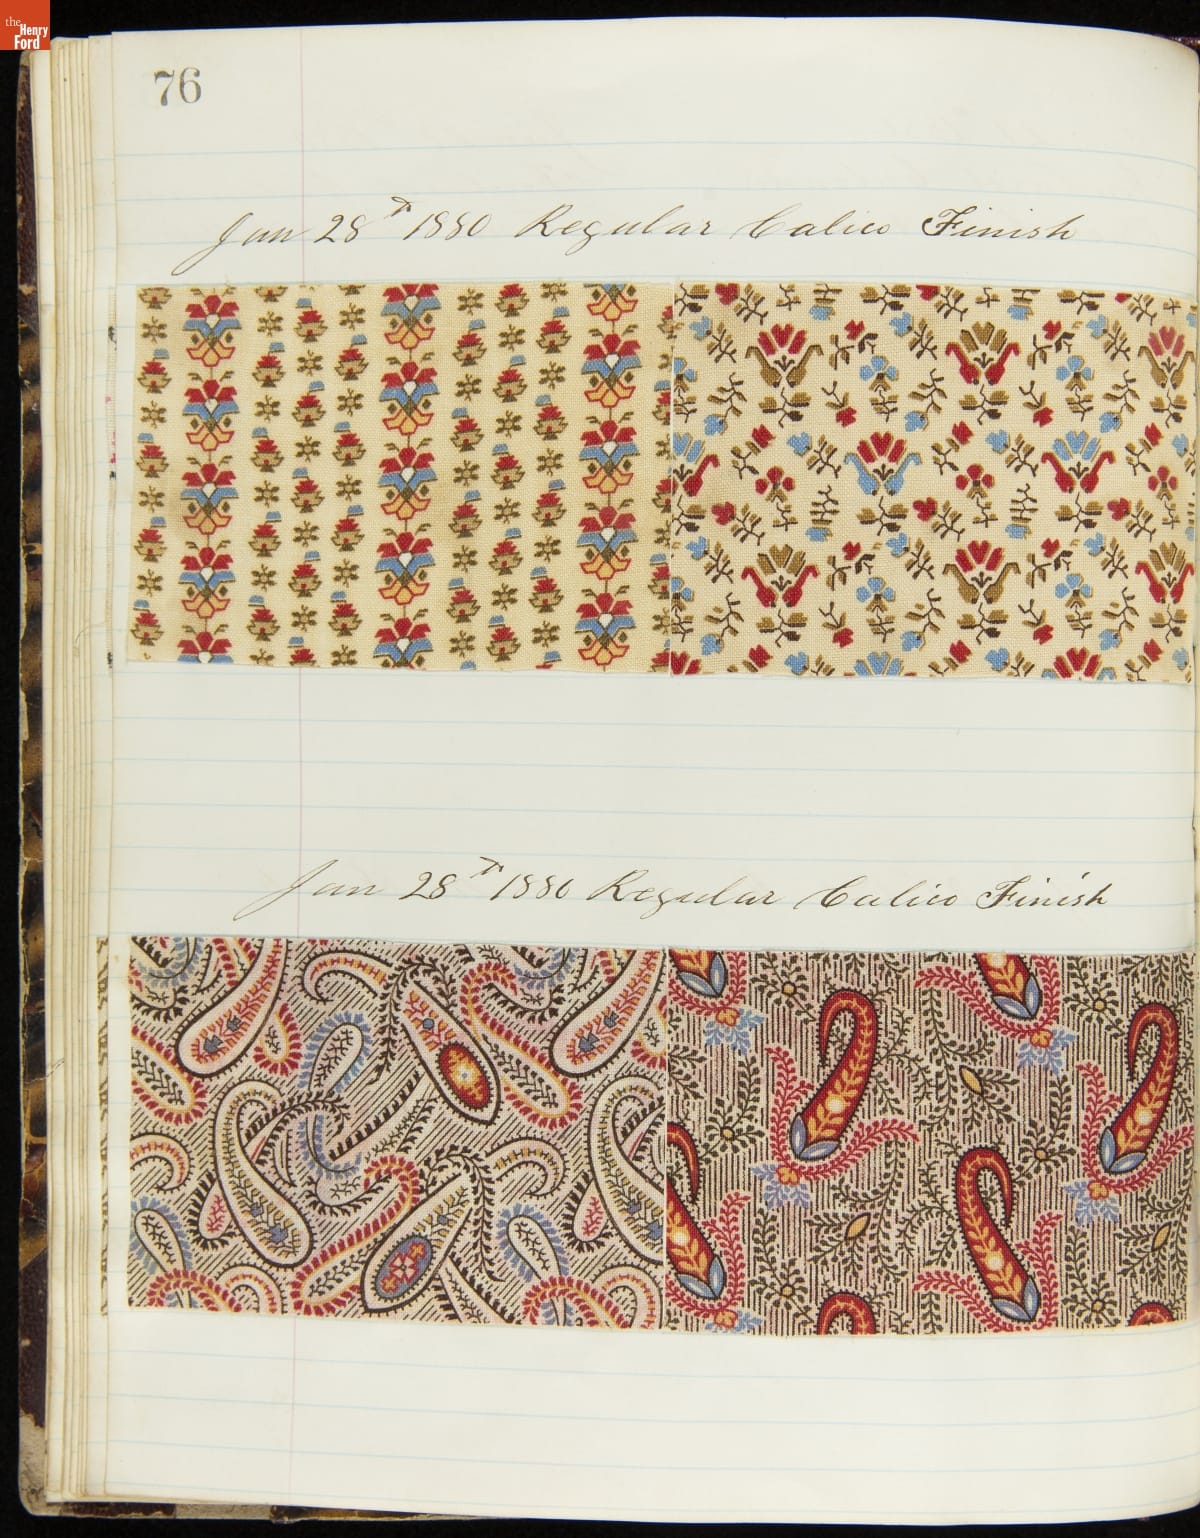 the
Henry
Ford
76
Jan 28th 1880 Regular Calico Finish
Jan 28th 1880 Regular Calico Finish